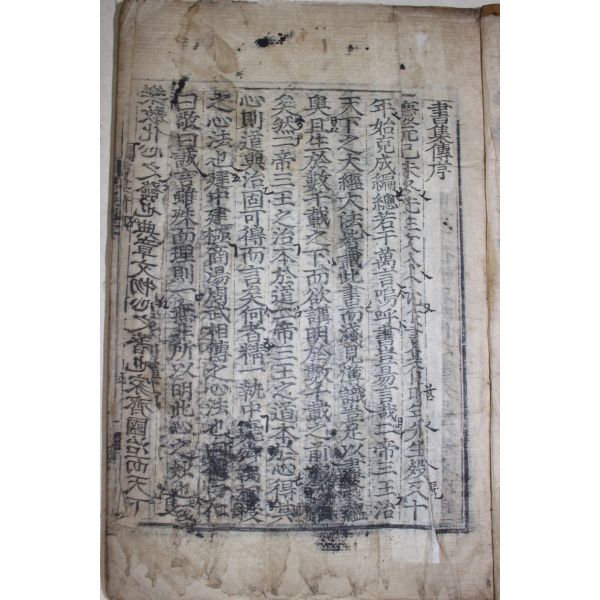 書集傳序
慶元己未冬先生文公令沈作書集傳明年先生歿又十
年始克成編總若干萬言嗚呼書豈易言哉二帝三王治
天下之大經大法皆載此書而淺見薄識豈足以盡發蘊
奧且生於數千載之下而欲講明於數千載之前
矣然二帝三王之治本於道二帝三王之道本於心得其
心則道與治固可得而言矣何者精一執中堯舜禹相授
之心法也建中建極商湯周武相傳之心法也曰德曰仁
曰敬曰誠言雖殊而理則一無非所以明此心之妙也至
樂教化心之發也典章文物心之著也家齊國治而天下